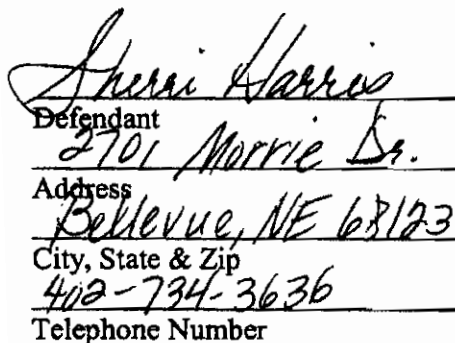 Sherri Harris
Defendant
2701 Morrie Dr.
Address
Bellevue, NE 68123
City, State & Zip
402-734-3636
Telephone Number